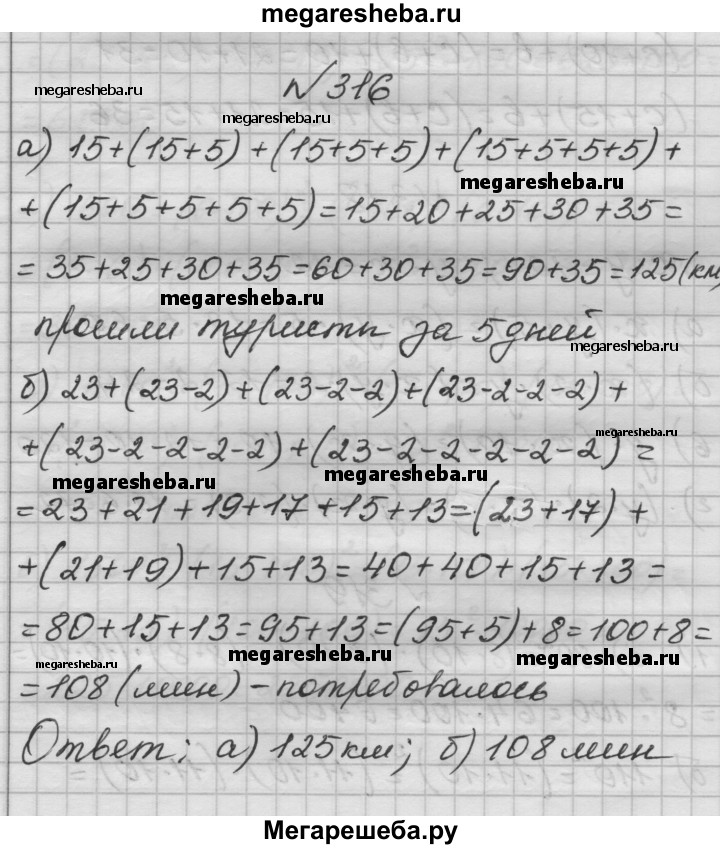 megaresheba.ru
megaresheba.ru
№316
megaresheba.ru
а) 15+(15+5)+(15+5+5)+(15+5+5+5)+
megaresheba.ru
+(15+5+5+5+5)=15+20+25+30+35=
=35+25+30+35=60+30+35=90+35=125(км)
megaresheba.ru
прошли туристы за 5 дней
megaresheba.ru
б) 23+(23-2)+(23-2-2)+(23-2-2-2)+
megaresheba.ru
+(23-2-2-2-2)+(23-2-2-2-2-2)=
megaresheba.ru
megaresheba.ru
=23+21+19+17+15+13=(23+17)+
+(21+19)+15+13=40+40+15+13=
=80+15+13=95+13=(95+5)+8=100+8=
megaresheba.ru
megaresheba.ru
megaresheba.ru
=108(мин)-потребовалось
Ответ: а) 125км; б) 108мин
Мегарешеба.ру